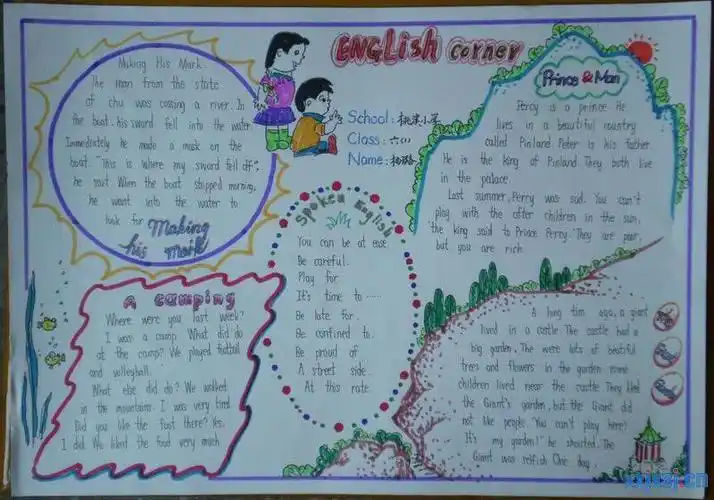 ENGLish corner
School: 桃渠小学
Class: 六(1)
Name:
Miking His Mark.
The man from the state
of chu was cossing a river. In
the boat. his sword fell into the water
Immediately he made a mask on the
boat. "This is where my sword fell off",
he saut. When the boat stipped morning,
he want into the water to
look for
Making
his mark
Prince & Man
Percy is a prince He
lives in a beautiful country
called Pinland Peter is his father.
He is the king of Pinland. They both live
in the palace.
Last summer, Perry was sad. You can't
play with the ofter children in the sun,
the king said to Prince Perry. They are poor,
but you are rich.
Spoken English
You can be at ease.
Be careful.
Play for
It's time to ......
Be late for.
Be confined to.
Be proud of
A street side.
At this rate.
A camping
Where were you last week?
I was a camp. What did do
at the camp? We played futtall
and volleyball.
What else did do? We walked
in the mountains. I was very tired
Did you like the foot there? Yes.
I did. We liked the food very much
A long tim ago, a giant
lived in a castle The castle had a
big garden, The were lots of beatiful
trees and flowers in the garden some
children lived near the castle They liked
the Giant's garden, but the Giant did
not like people. "You can't play here!
It's my garden!" he shouted. The
Giant was relfish One day